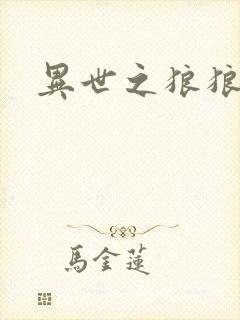 異世之狼狼
馬金蓮